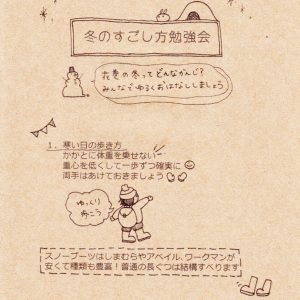 冬のすごし方勉強会
花巻の冬ってどんなかんじ？
みんなでゆるくおはなししましょう
1. 寒い日の歩き方
かかとに体重を乗せない
重心を低くして一歩ずつ確実に
両手はあけておきましょう
ゆっくり
歩こう
スノーブーツはしまむらやアベイル、ワークマンが
安くて種類も豊富！普通の長ぐつは結構すべります